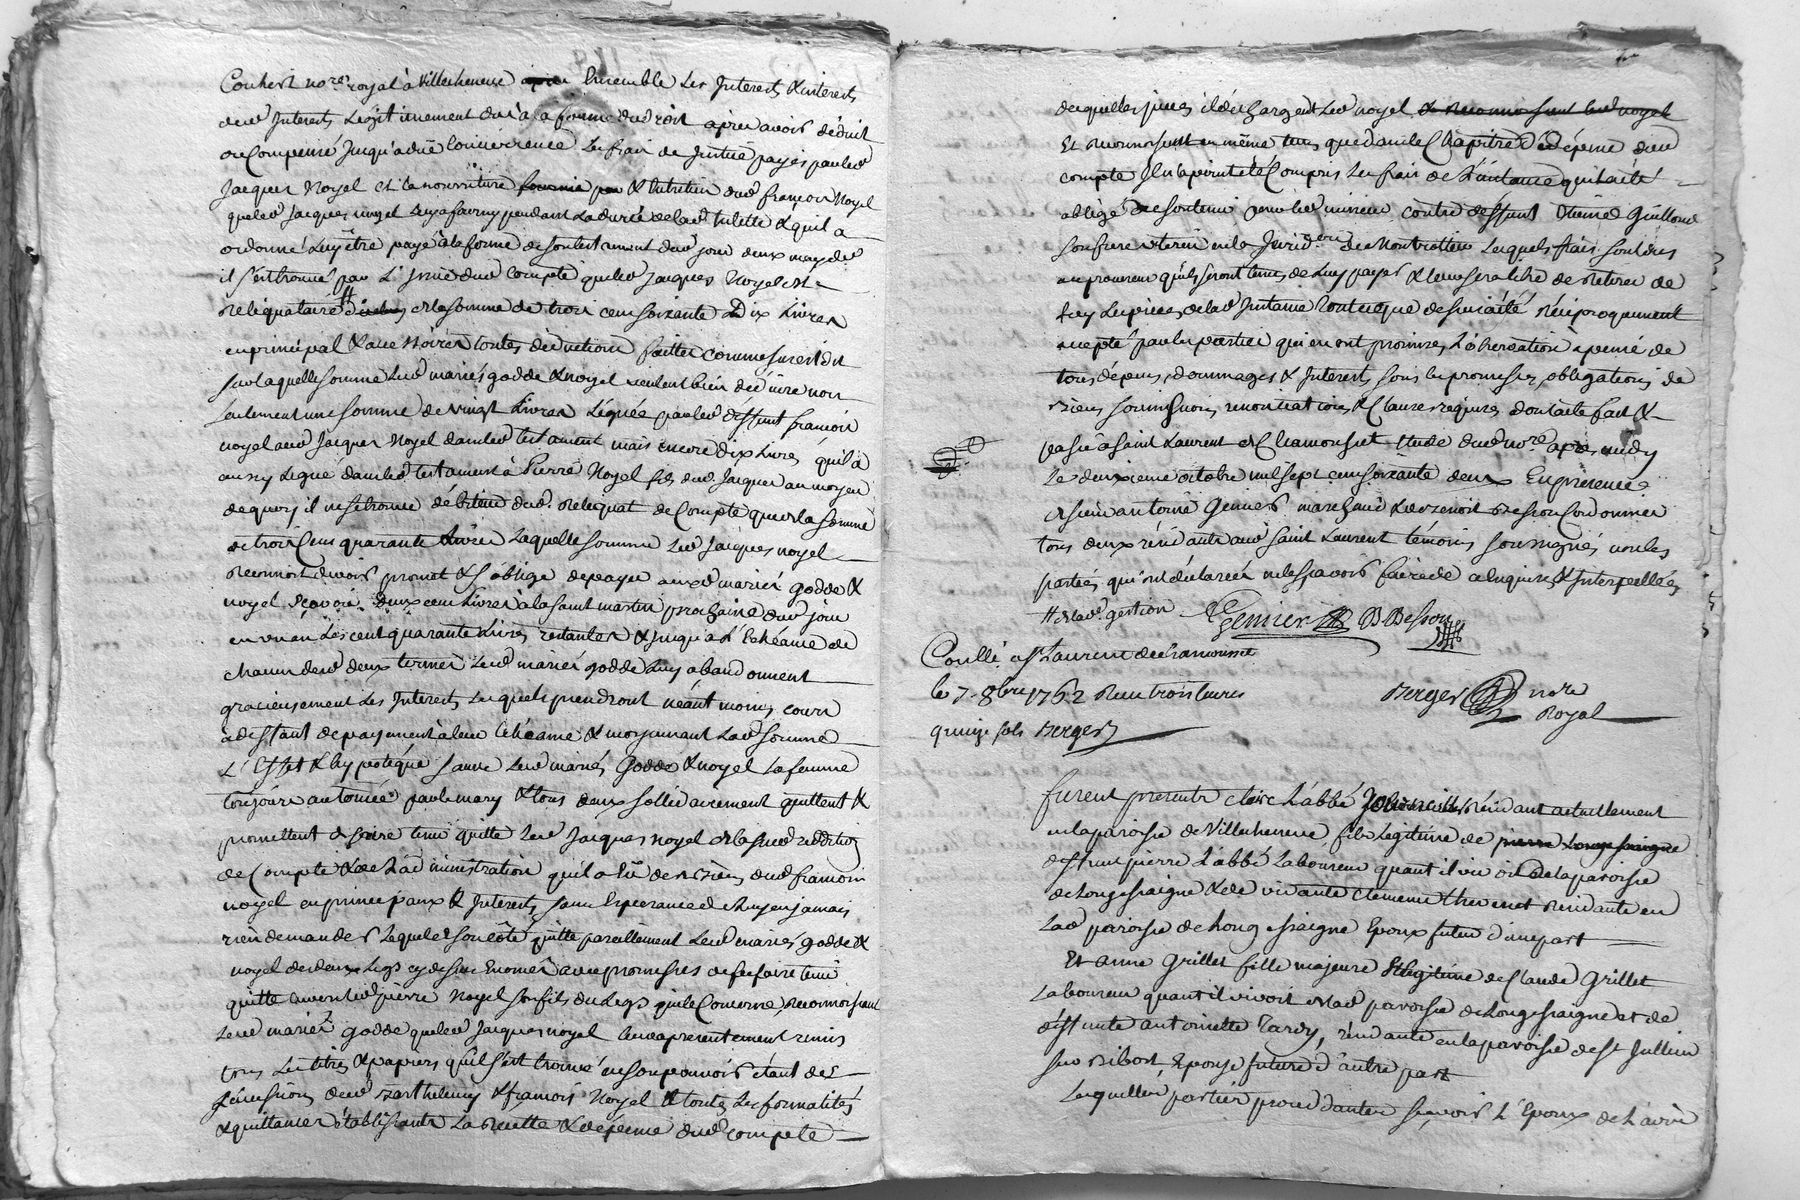 Couhert no.re royal à Villecheneve Ensemble Les Interests & interests
desd Interests Légitimement dus à la forme du droit apres avoir déduit
ou Compensé jusqu'a düe Concurrence Les frais de Justice payés par led
Jacques Noyel et la nourriture fournie par & Entretien dud françois Noyel
que led Jacques noyel luy a fourny pendant La durée de lad tutelle & quil a
ordonné Luy être payé à la forme de son testament dud jour deux may de
il s'est trouvé par L'issuë dud compte que led Jacques Noyel est
reliquataire de la somme de trois cens soixante & Dix Livres
en principal & accessoires toutes déductions faittes comme sus est dit
sur laquelle somme Lesd mariés godde & noyel veulent bien déduire non
seulement une somme de vingt Livres Léguée par led deffunt françois
noyel aud Jacques Noyel dans led testament mais encore dix Livres quil a
aussy Legué dans led testament à Pierre Noyel fils dud Jacques au moyen
de quoy il ne se trouve débiteur dud Reliquat de Compte que de la somme
de trois Cens quarante Livres Laquelle somme Led Jacques noyel
Reconnoit devoir promet & s'oblige de payer auxd mariés godde &
noyel sçavoir deux cens Livres à la saint martin prochaine dud jour
en un an Les cent quarante Livres restantes & jusqu'a L'Echéance de
chacun desd deux termes Lesd mariés godde Luy abandonnent
gracieusement Les Interests Lesquels prendront néantmoins cours
à deffaut de payement à leur Echéance & moyennant Lad somme
L'Effet & hypotéque sauve Lesd mariés Godde & noyel La femme
toujours autorisée par le mary & tous deux sollidairement quittent &
promettent de faire tenir quitte Led Jacques noyel de la susd reddition
de Compte & de L'administration qu'il a Eü des biens dud françois
noyel en principaux & Interests sans Esperance de luy en jamais
rien demander Lequel de son coté quitte pareillement Lesd mariés godde &
noyel des deux Legs cy dessus Enoncés avec promesses de les faire tenir
quitte envers led pierre Noyel son fils du Legs qui le Concerne, reconnoissant
Lesd mariés godde que led Jacques noyel leur a presentement remis
tous Les titres & papiers qu'il s'est trouvé en son pouvoir étant des
successions desd Barthelemy & françois Noyel & toutes Les formalités
& quittances établissants La Recette & dépense dud compte
desquelles pieces ils déchargent Led noyel & reconnoissent led noyel
Et reconnoissent en même tems que dans le Chapitre de dépense dud
compte Il n'a point été Compris Les frais de L'instance qu'il a été
obligé de soutenir pour led mineur contre deffunt Guillaud
son frere uterin en la Jurid.on de Montrottier Lesquels frais sont dus
au procureur qu'ils seront tenus de Luy payer & leur sera libre de retirer de
luy Les pieces de lad Instance Tout ce que dessus a été Réciproquement
accepté par les parties qui en ont promis L'observation a peine de
tous dépens, dommages & Interests sous les promesses, obligations de
Biens soumissions renonciations & Clauses requises dont acte fait &
passé à Saint Laurent de Chamousset Etude dud no.re aprés midy
Le deuxieme octobre mil sept cens soixante deux En presence
de sieur antoine Genier marchand & Benoit Besson Cordonnier
tous deux résidants aud Saint Laurent témoins soussignés non les
parties qui ont déclarées ne le sçavoir faire de ce enquises & Interpellées
# de lad gestion Genier B Besson
Conllé a St Laurent de Chamousset
le 7. 8bre 1762 Reçu trois livres Berger nore
quinze sols Berger Royal
furent presents Claude L'abbé résidant actuellement
en la paroisse de Villecheneve fils Legitime de pierre Longessaigne
deffunt pierre L'abbé Laboureur quant il vivoit de la paroisse
de Longessaigne & de vivante Clemence thevenet residante en
Lad paroisse de Longessaigne Epoux futur d'une part
Et anne Grillet fille majeure & legitime de Claude Grillet
Laboureur quant il vivoit de lad paroisse de Longessaigne et de
deffunte antoinette Tardy, résidante en la paroisse de St Jullien
sur Bibost, Epouse future d'autre part
Lesquelles parties procedantes sçavoir L'Epoux de L'avis